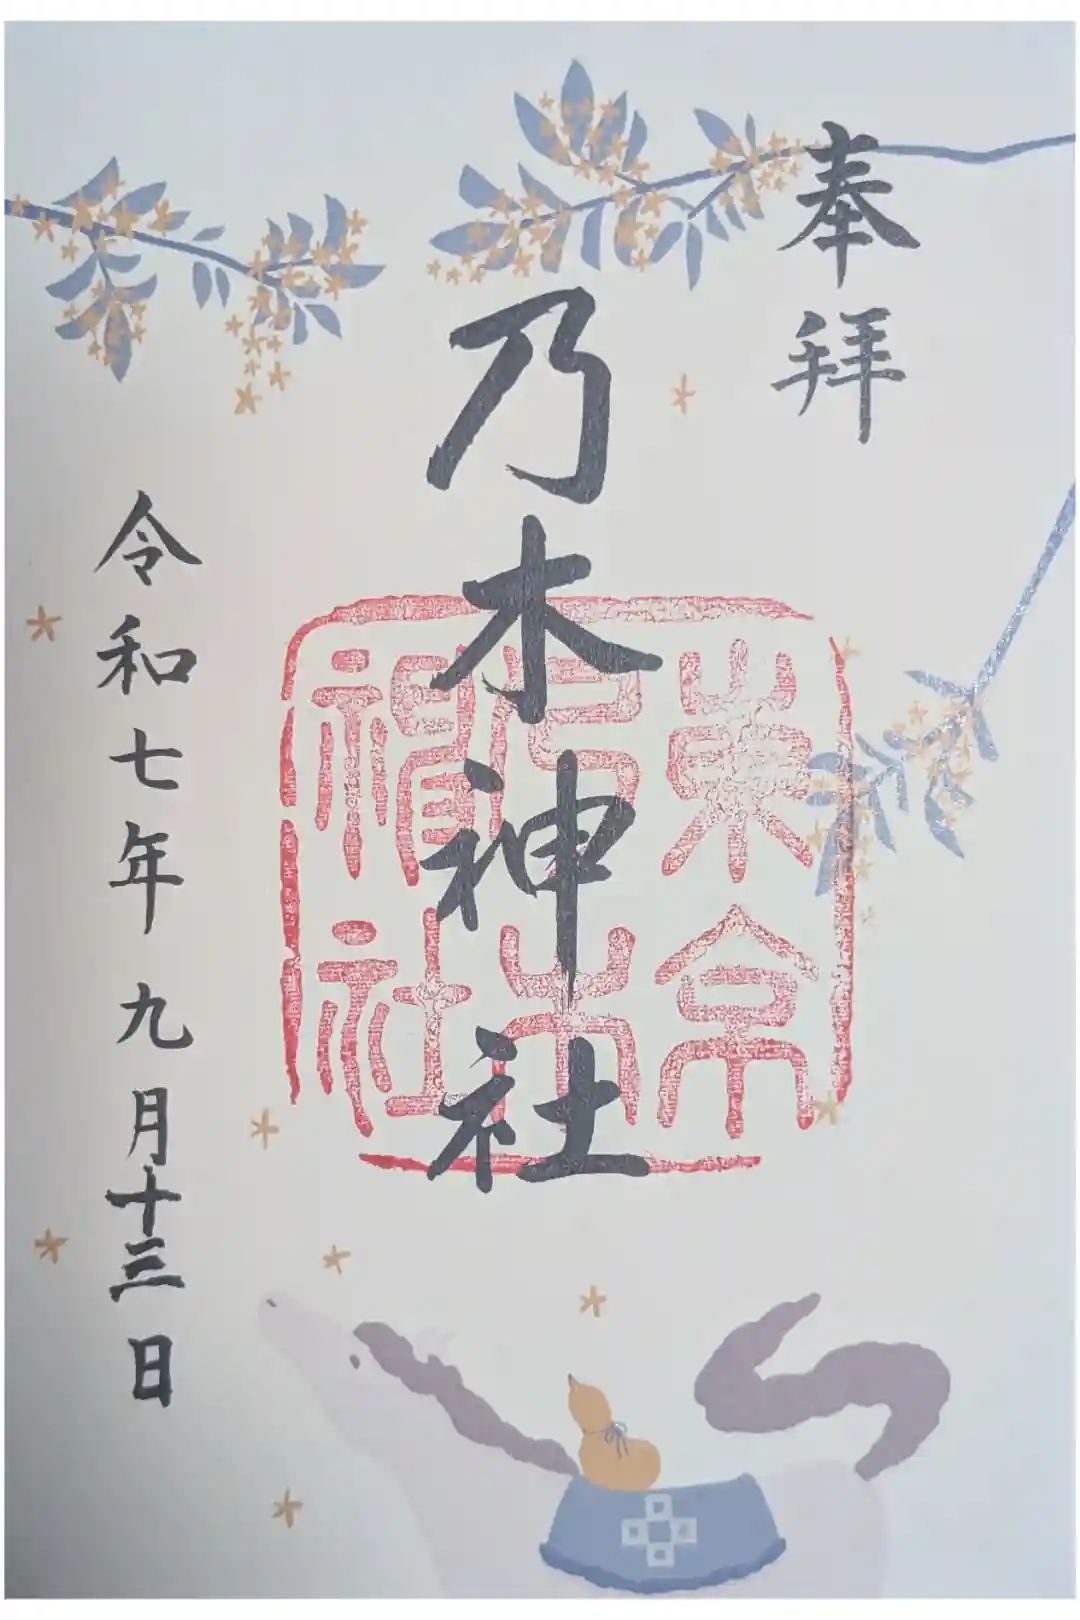 奉拝
乃木神社
令和七年九月十三日
乃木
神社